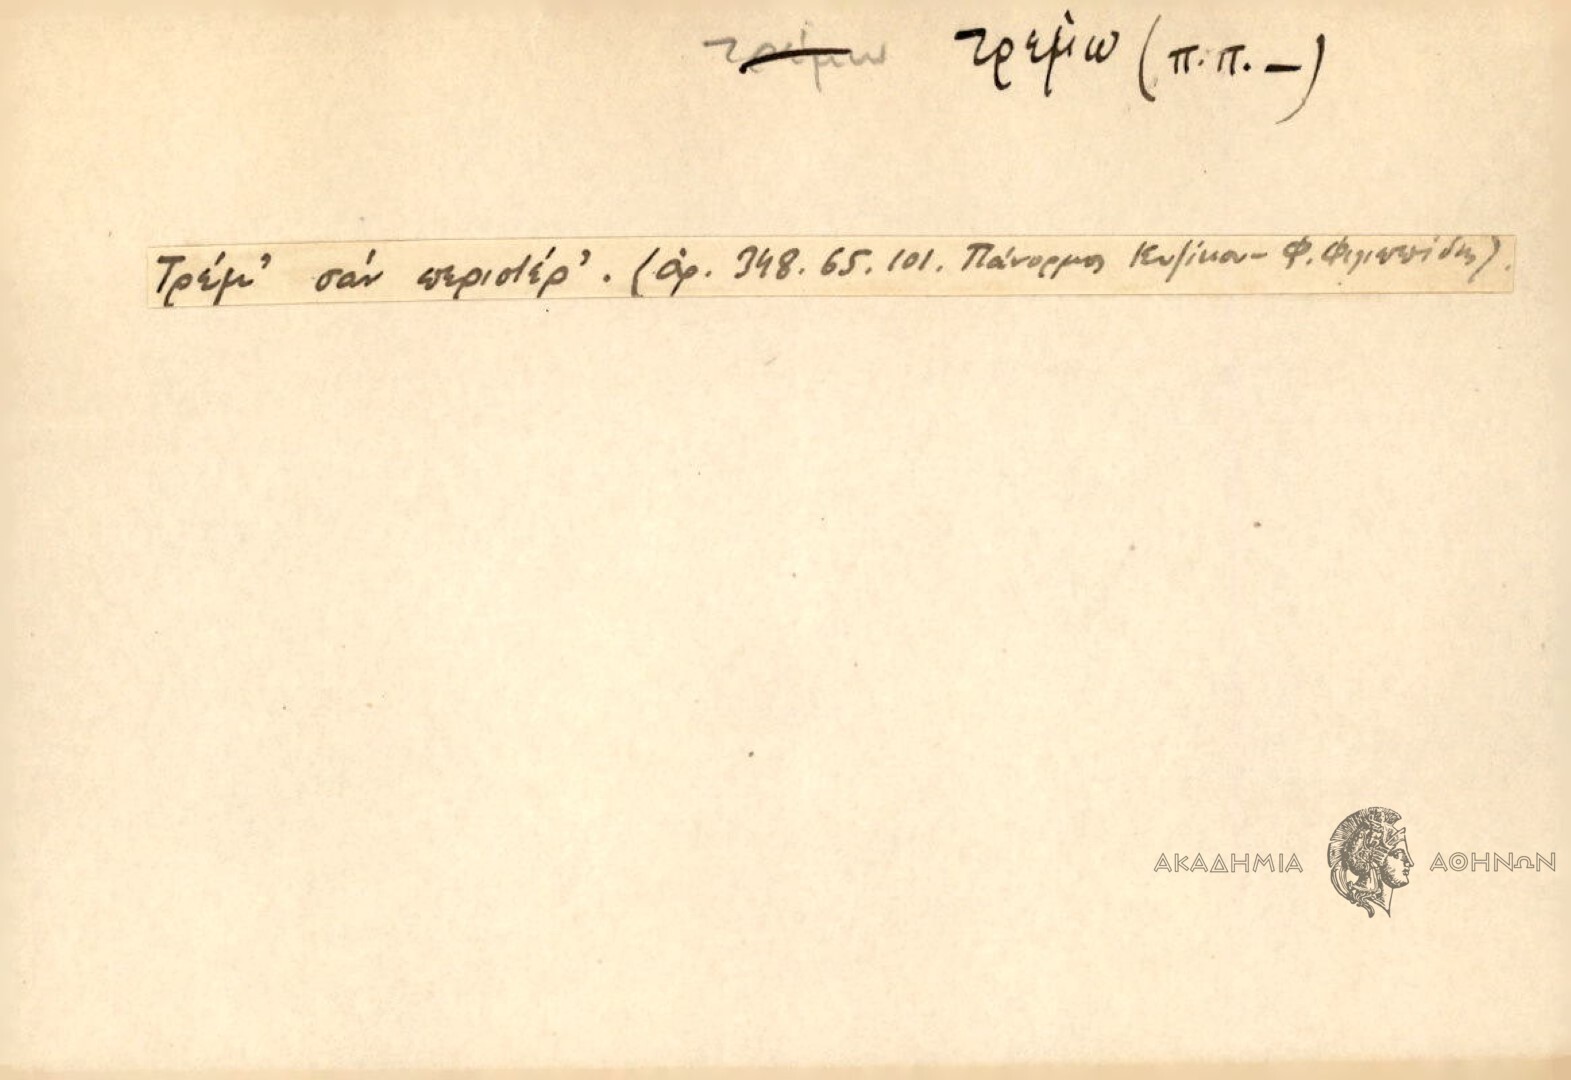 τρέμω τρέμω (π.π. –)
Τρέμ' σάν περιστέρ'. (ἀρ. 348. 65. 101. Πάνορμος Κυζίκου - Φ. Φιλιππίδης).
ΑΚΑΔΗΜΙΑ ΑΘΗΝΩΝ